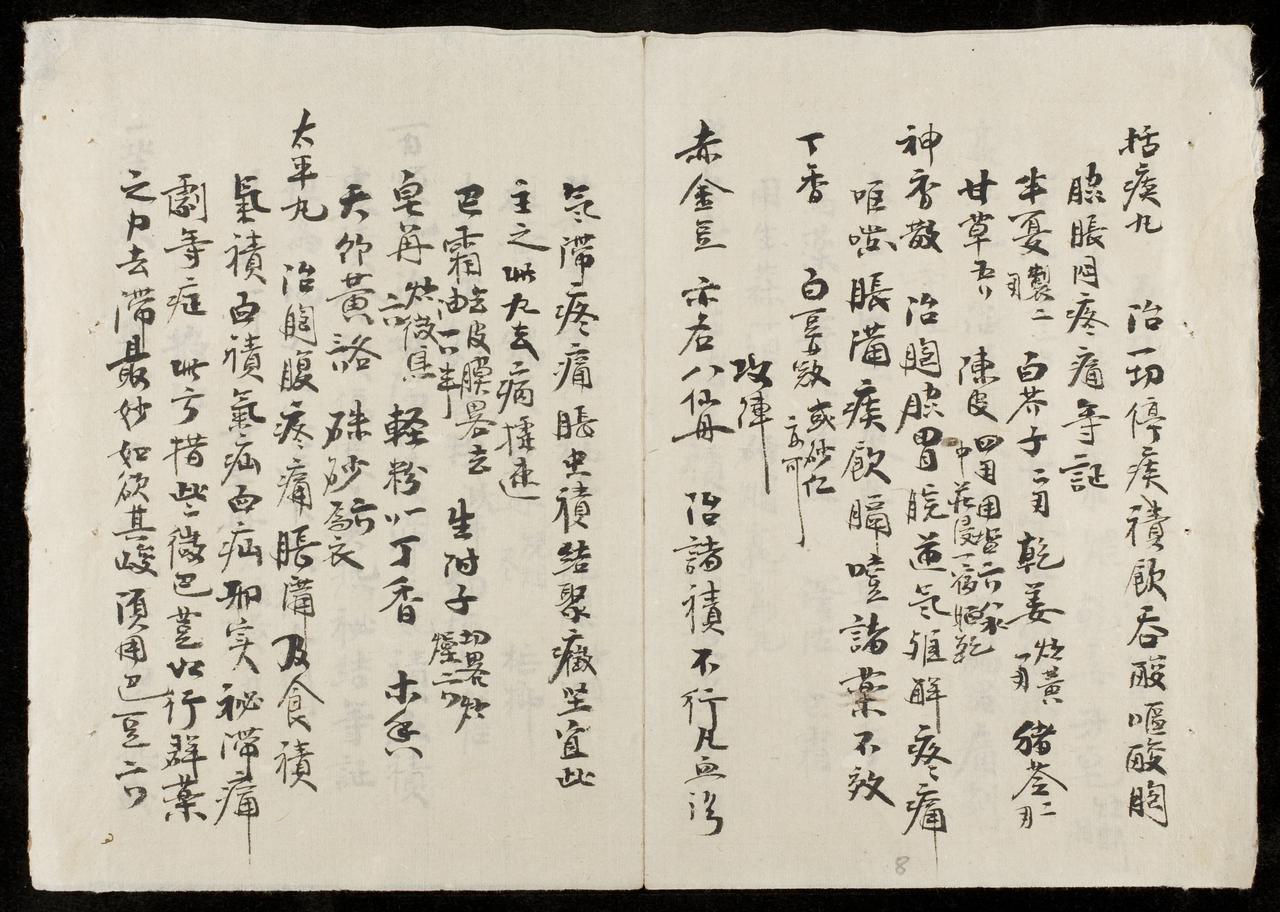 括痰丸 治一切停痰積飲吞酸嘔酸胸
脇脹悶疼痛等証
半夏製二刄 白芥子二刄 乾姜炒黃一刄 猪苓二刄
甘草五 陳皮四刄用盐中 浸一宿晒乾
神香散 治胸脇胃脘逆气難解疼痛
嘔噦脹滿痰飲膈噎諸藥不效
丁香 白豆蔻 或砂仁亦可
攻陣
赤金豆 亦名八仙丹 治諸積不行凡血
气滯疼痛脹虫積結聚癥堅宜此
主之此丸去病捷速
巴霜去皮膜畧去油一半 生附子 畧炒燥二
皂角炒微焦 軽粉 丁香 木香
天竺黃 硃砂 爲衣
太平丸 治胸腹疼痛脹滿及食積
氣積血積氣疝血疝邪实祕滯痛
劇等症 此方惜些微巴荳以行群藥
之力去滯最妙如欲其峻須用巴豆二
8